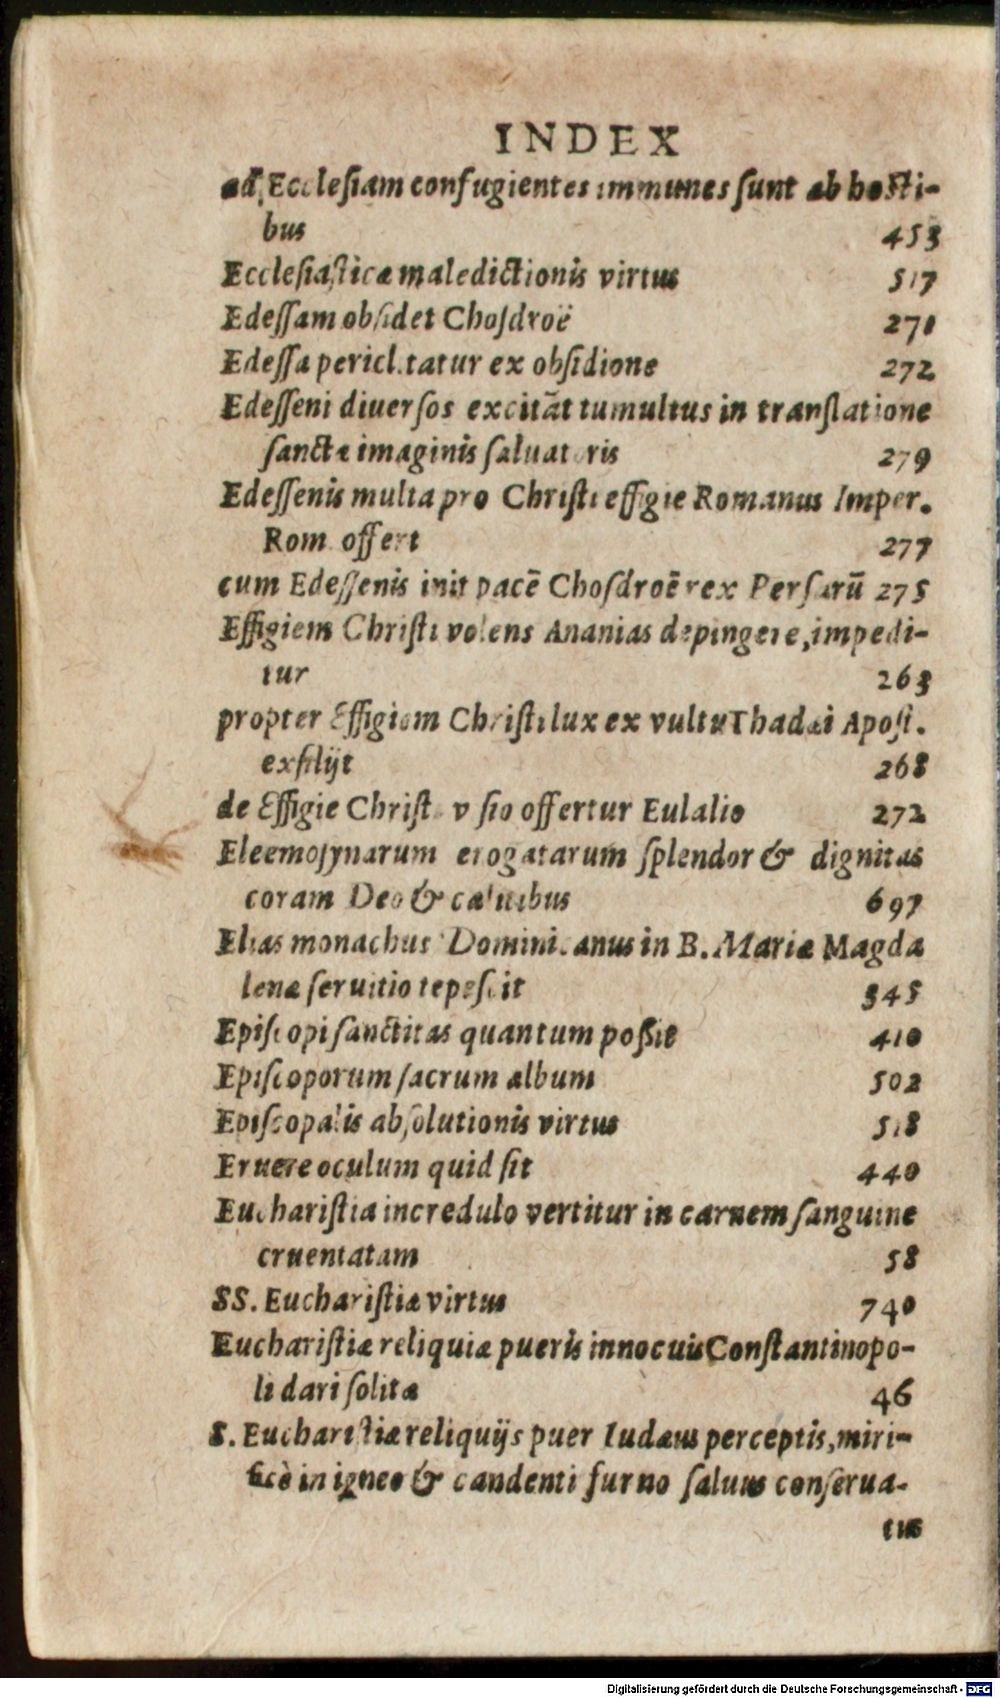 INDEX
ad Eccleſiam confugientes immunes ſunt ab hoſti-
bus 453
Eccleſiaſticæ maledictionis virtus 517
Edeſſam obſidet Choſdroë 271
Edeſſa periclitatur ex obſidione 272
Edeſſeni diuerſos excitãt tumultus in tranſlatione
ſanctæ imaginis ſaluatoris 279
Edeſſenis multa pro Chriſti effigie Romanus Imper.
Rom. offert 277
cum Edeſſenis init pacē Choſdroē rex Perſarū 275
Effigiem Chriſti volens Ananias depingere, impedi-
tur 263
propter Effigiem Chriſti lux ex vultu Thadæi Apoſt.
exſilijt 268
de Effigie Chriſti viſio offertur Eulalio 272
Eleemoſynarum erogatarum ſplendor & dignitas
coram Deo & cælitibus 697
Elias monachus Dominicanus in B. Mariæ Magda
lenæ ſeruitio tepeſcit 345
Epiſcopi ſanctitas quantum poßit 410
Epiſcoporum ſacrum album 502
Epiſcopalis abſolutionis virtus 518
Eruere oculum quid ſit 440
Euchariſtia incredulo vertitur in carnem ſanguine
cruentatam 58
SS. Euchariſtiæ virtus 740
Euchariſtiæ reliquiæ pueris innocuis Conſtantinopo-
li dari ſolitæ 46
S. Euchariſtiæ reliquijs puer Iudæus perceptis, miri-
ficè in igneo & candenti furno ſaluus conſerua-
tus
Digitalisierung gefördert durch die Deutsche Forschungsgemeinschaft - DFG